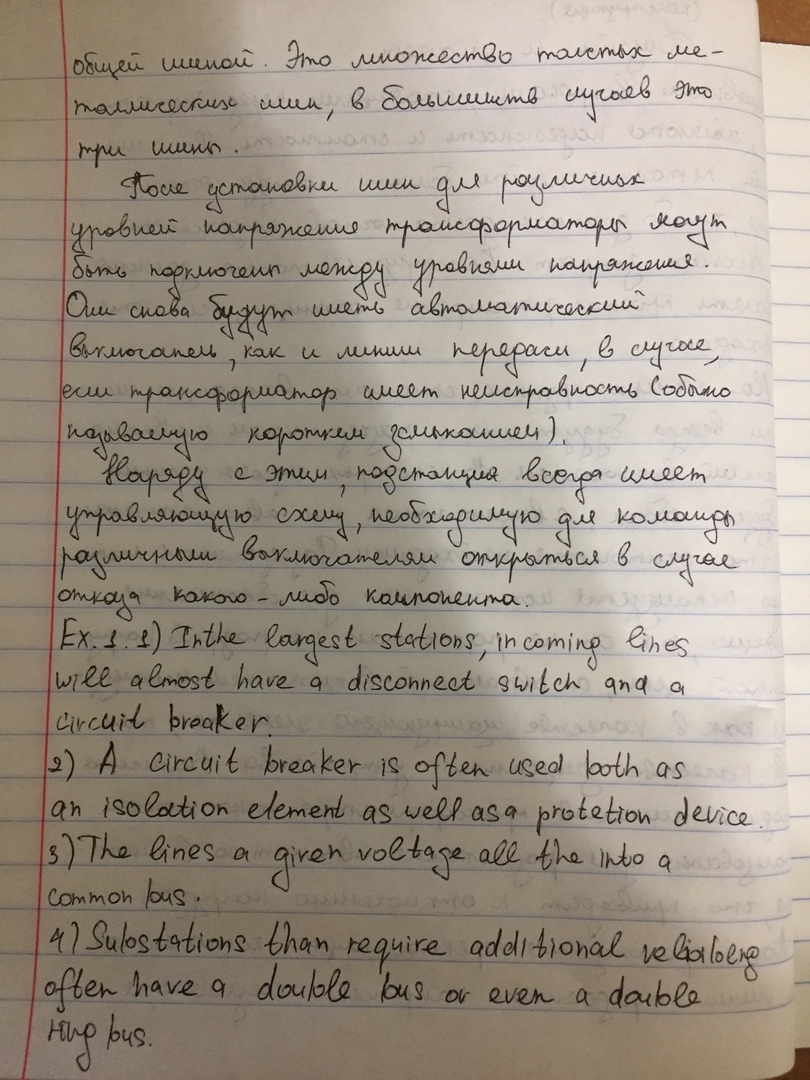 общей шиной. Это множество толстых ме-
таллических шин, в большинств случаев это
три шины.
После установки шин для различных
уровней напряжение трансформаторы могут
быть подключены между уровнями напряжения.
Они снова будут иметь автоматический
выключатель, как и линии передачи, в случае,
если трансформатор имеет неисправность (обычно
называемую коротким замыканием).
Наряду с этим, подстанция всегда имеет
управляющую схему, необходимую для команды
различными выключателям открыться в случае
отказа какого-либо компонента.
Ex. 1. 1) Inthe largest stations, incoming lines
will almost have a disconnect switch and a
circuit breaker.
2) A circuit breaker is often used both as
an isolation element as well as a protetion device.
3) The lines a given voltage all the into a
common bus.
4) Substations than require additional
often have a double bus or even a double
ring bus.